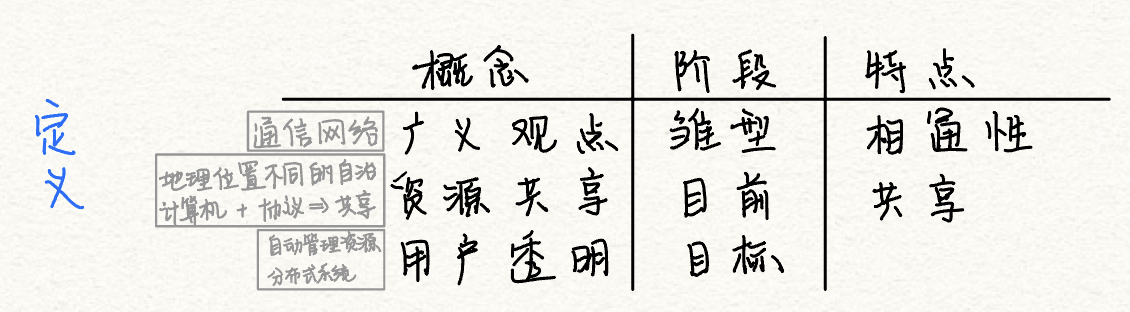 概念 阶段 特点
定义
通信网络 广义观点 雏型 相通性
地理位置不同的自治
计算机 + 协议 ⇒ 共享 资源共享 目前 共享
自动管理资源
分布式系统 用户透明 目标